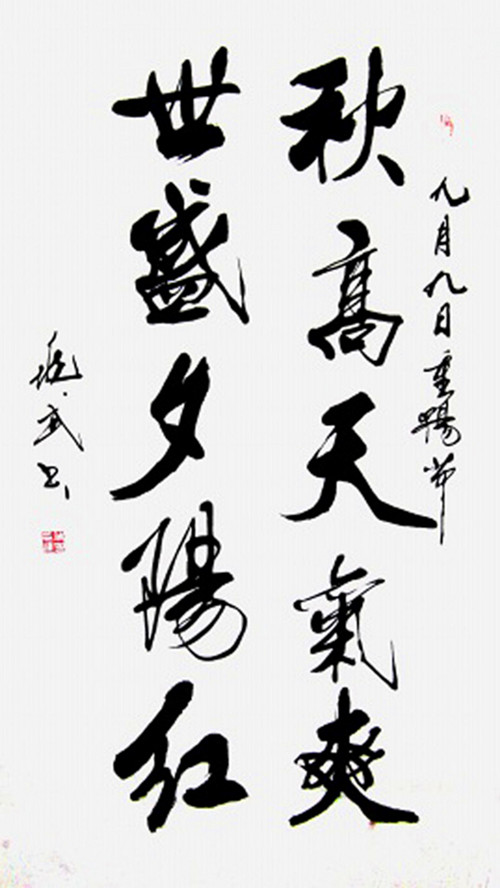 九月九日重陽节
秋高天氣爽
世盛夕陽红
武书